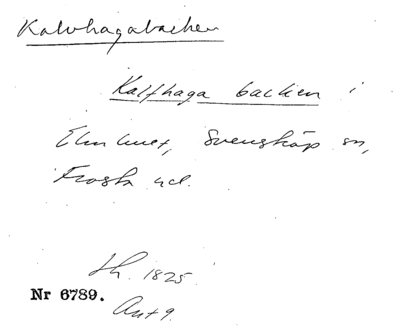 Kalvhagabacken
Kalfhaga backen i
Elmhult, Svensköp sn,
Frosta hd.
Lh. 1825
Nr 6789.
Ant 9.